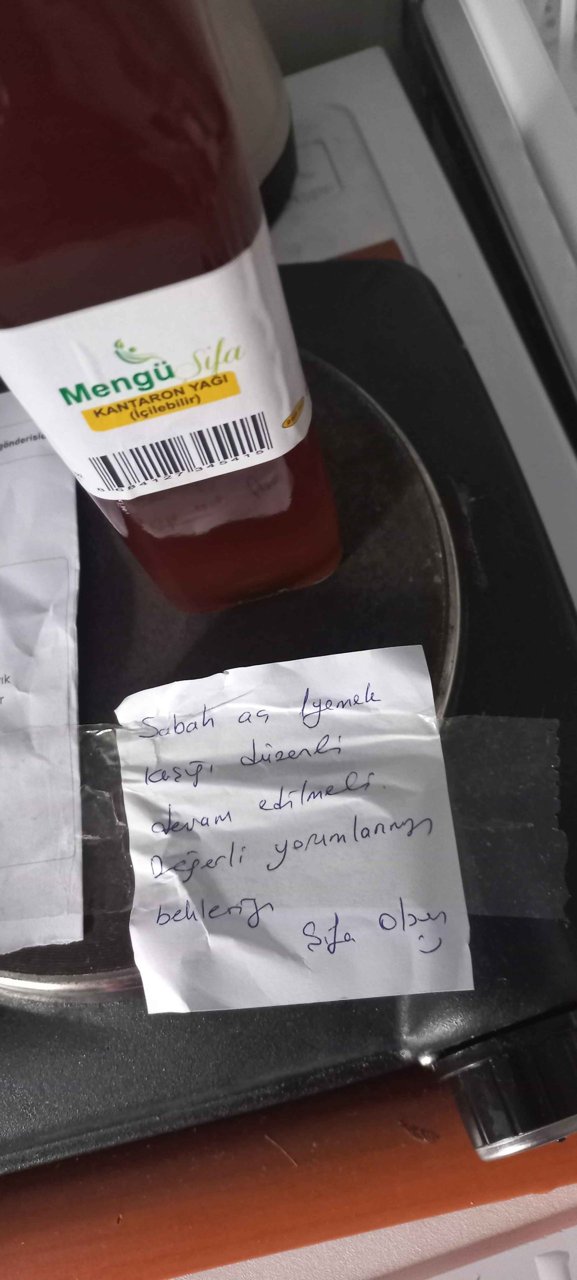 Mengü Şifa
KANTARON YAĞI
(İçilebilir)
8 684127 345415
gönderisi
Sabah aç 1 yemek
kaşığı düzenli
devam edilmeli.
Değerli yorumlarınızı
bekleriz
Şifa Olsun